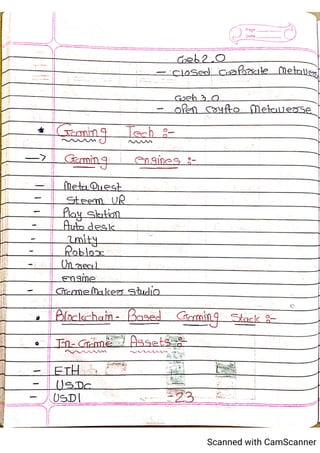 Page
Date
Web 2.0
- closed corporate metaverse
Web 3.0
- open crypto metaverse
* Gaming Tech :-
→ Gaming engines :-
- Meta Quest
- Steem VR
- Play station
- Auto desk
- Unity
- Roblox
- Unreal
engine
- Game Maker studio
• Blockchain - Based Gaming Stack :-
• In-Game Assets :-
- ETH
- USDC
- USDI
-23
Scanned with CamScanner